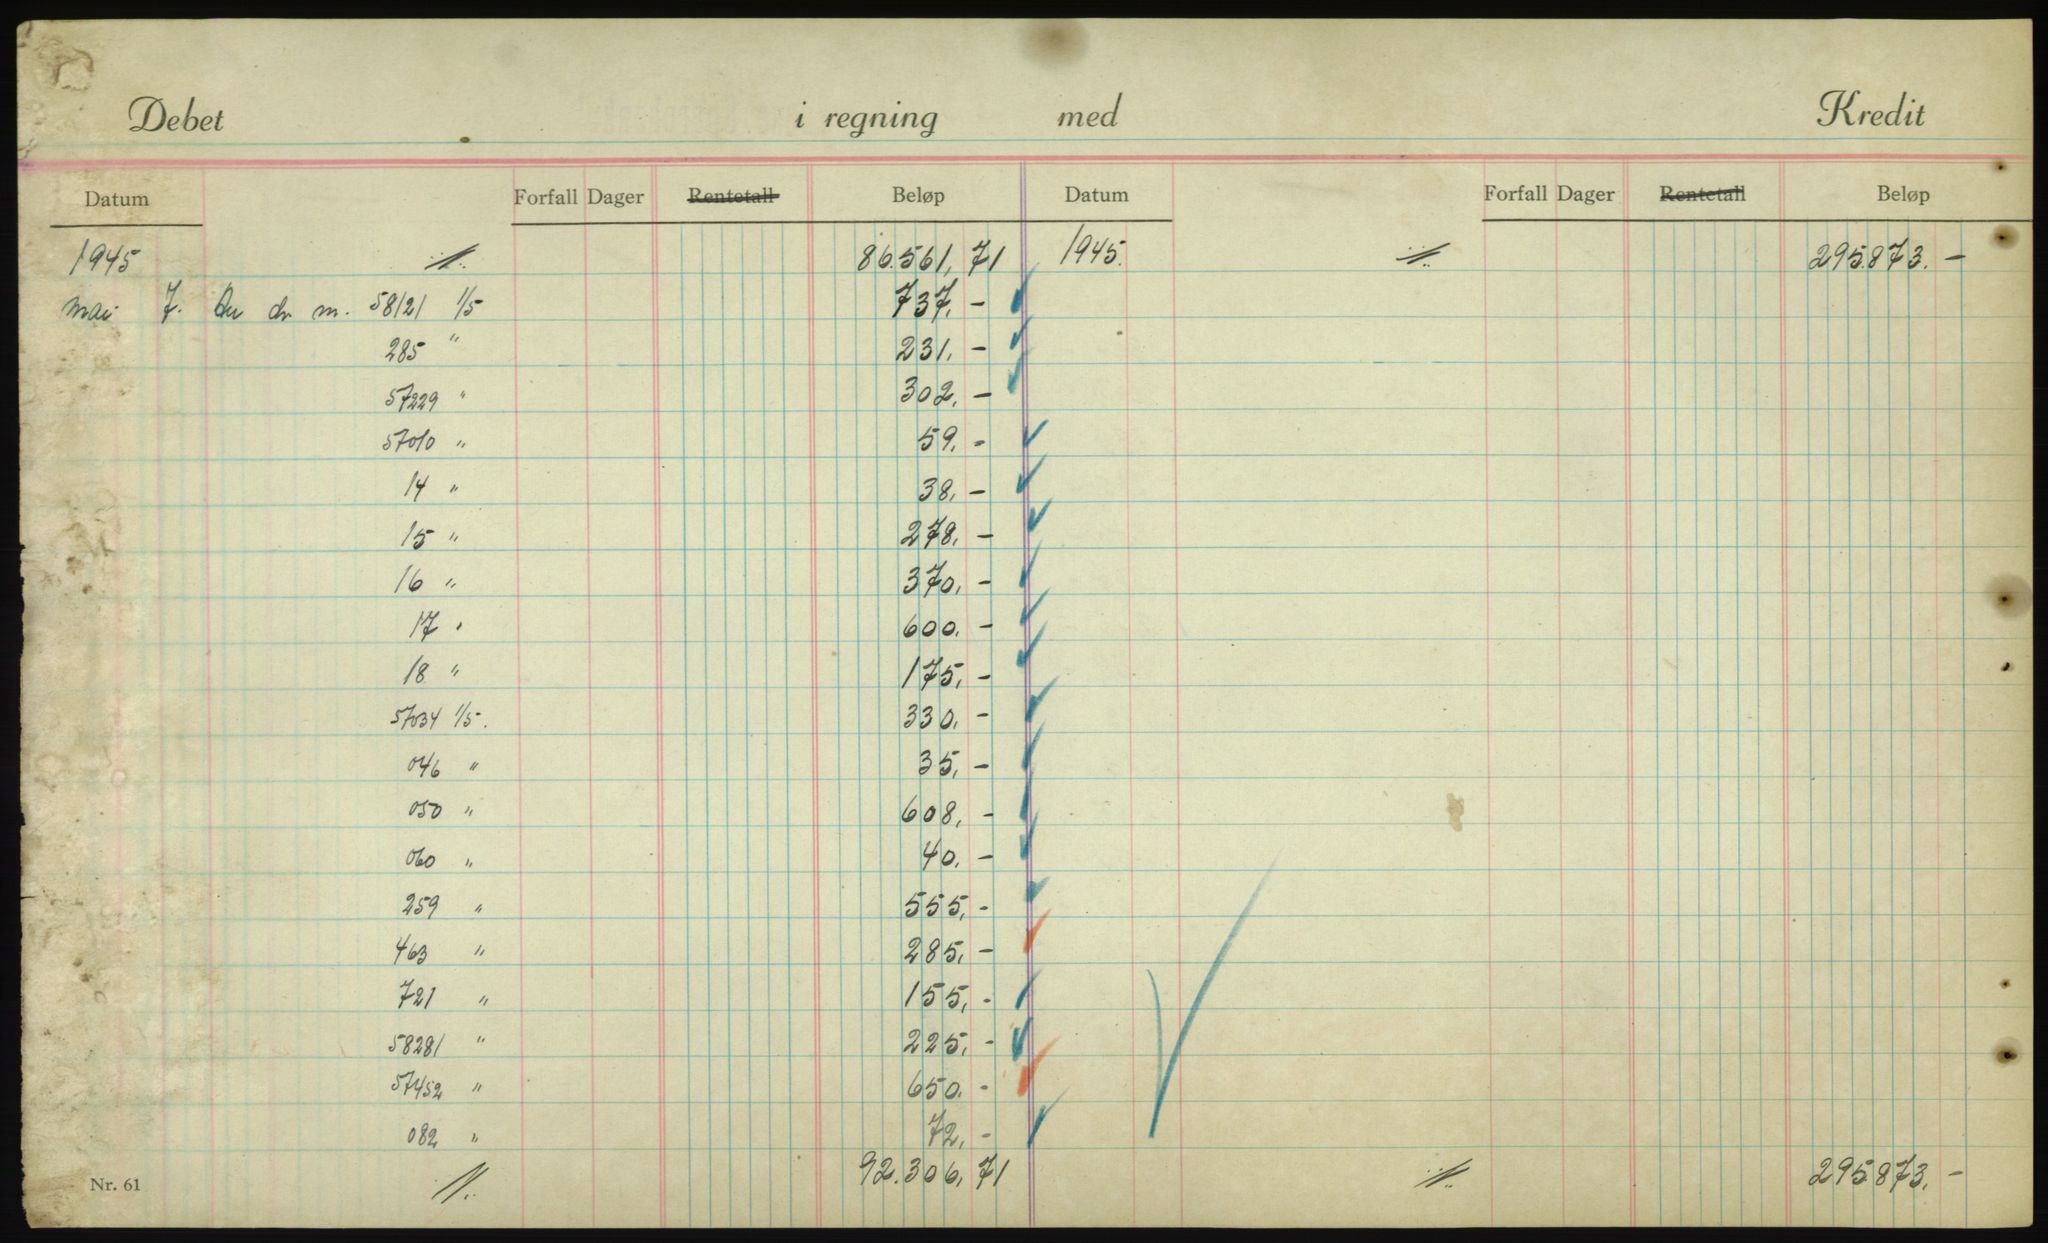 Debet i regning med Kredit
Datum Forfall Dager Rentetall Beløp Datum Forfall Dager Rentetall Beløp
1945 86.561,71 1945. 295.873.-
mai 7. m. 58121 1/5 737,-
285 " 231.-
57229 " 302.-
57010 " 59.-
14 " 38,-
15 " 278.-
16 " 370,-
17 " 600.-
18 " 175,-
57034 1/5. 330.-
046 " 35,-
050 " 608,-
060 " 40.-
259 " 555,-
463 " 285,-
721 " 155,-
58281 " 225,-
57452 " 650.-
082 " 72,-
92.306,71 295.873.-
Nr. 61